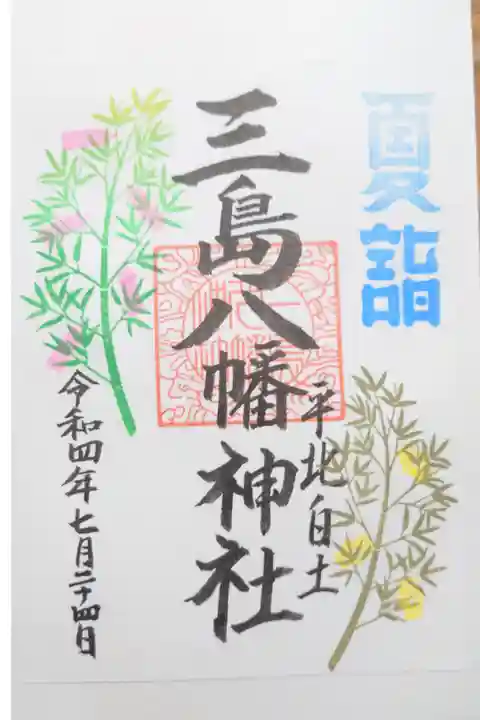 夏詣
三島八幡神社
平北白土
令和四年七月二十四日